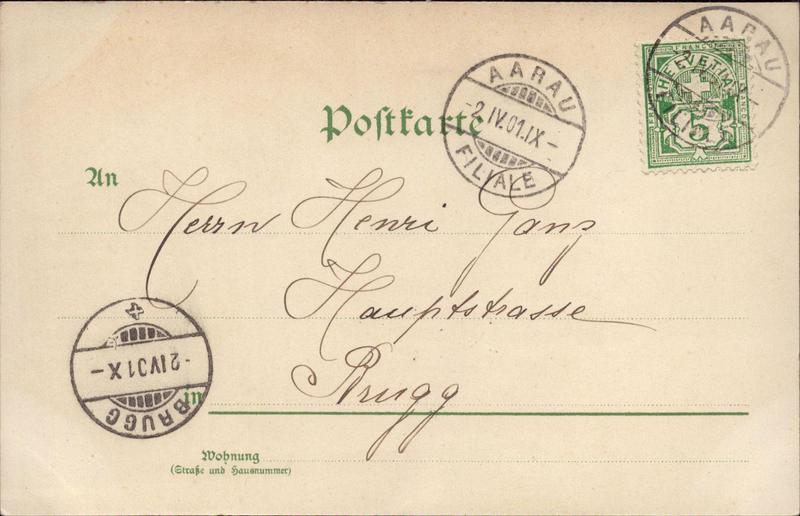 AARAU
-2.IV.01.IX-
FILIALE
AARAU
FRANCO
HELVETIA
5
Postkarte
An
Herrn Henri Gans
Hauptstrasse
Brugg
in
BRUGG
-2.IV.01.X-
Wohnung
(Straße und Hausnummer)